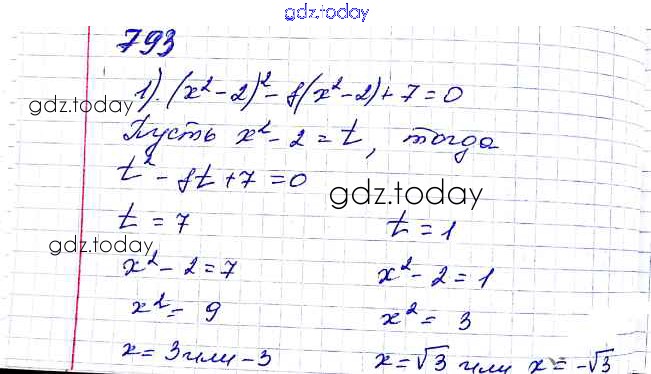 gdz.today
793
1). (x² - 2)² - 8(x² - 2) + 7 = 0
gdz.today
Пусть x² - 2 = t, тогда
t² - 8t + 7 = 0
gdz.today
t = 7 t = 1
gdz.today
x² - 2 = 7 x² - 2 = 1
x² = 9 x² = 3
x = 3 или -3 x = √3 или x = -√3